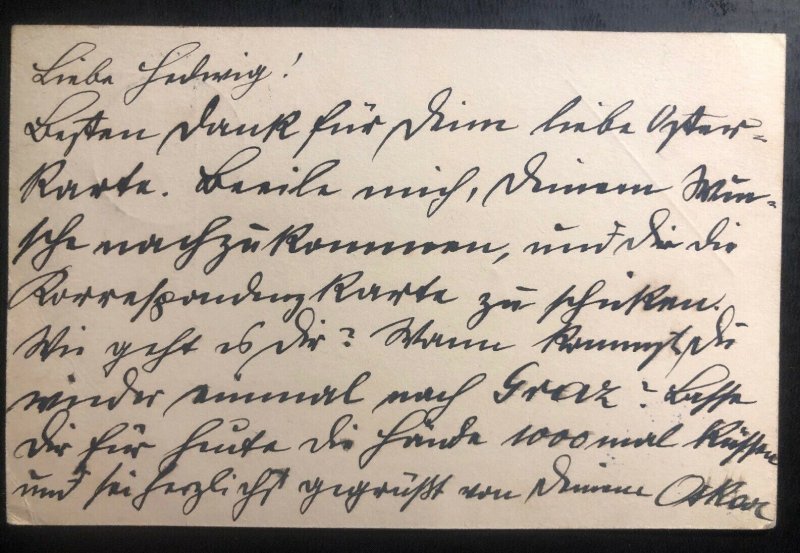 Liebe Hedwig!
Besten Dank für Deine liebe Oster-
Karte. Beeile mich, Deinem Wun-
sche nachzukommen, und Dir die
Korrespondenzkarte zu schicken.
Wie geht es Dir? Wann kommst Du
wieder einmal nach Graz? Lasse
Dir für heute die Hände 1000mal küssen
und sei herzlichst gegrüßt von Deinem Oskar